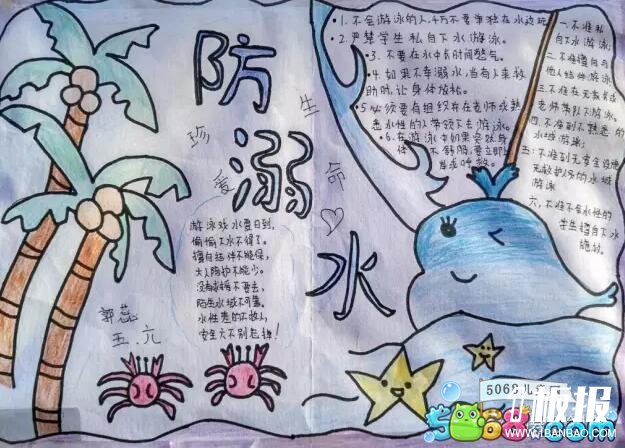 防溺水
珍爱生命
游泳戏水夏日到，
偷偷下水不得了。
擅自结伴不能保，
大人陪护不能少。
没有救援不要去，
陌生水域不可靠。
水性差的不救人，
安全大不别忘掉！
郭蕊
五.六
•1.不会游泳的人千万不要单独在水边玩
•2.严禁学生私自下水游泳。
•3.不要在水中长时间憋气。
•4.如果不幸溺水，当有人来救
助时，让身体放松。
•5.必须要有组织并在老师或熟
悉水性的人带领下去游泳。
•6.在游泳中如果突然身
体不舒服，要立即上
岸或呼救。
一.不准私
自下水游泳；
二.不准擅自与
他人结伴游泳。
三.不准在无家长或
老师带队下游泳。
四.不准到不熟悉的
水域游泳；
五：不准到无安全设施
无救护员的水域
游泳
六，不准不会水性的
学生擅自下水
施救。
5068儿童网
5068
板报
1BANBAO.COM